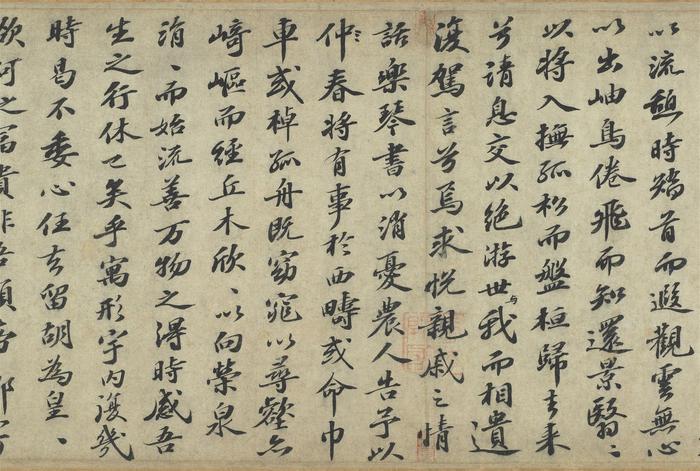 以流憩時矯首而遐觀雲無心
以出岫鳥倦飛而知還景翳〻
以將入撫孤松而盤桓歸去来
兮請息交以絕游世與我而相遺
復駕言兮焉求悅親戚之情
話樂琴書以消憂農人告予以
仲〻春將有事於西疇或命巾
車或棹孤舟既窈窕以尋壑亦
崎嶇而經丘木欣〻以向榮泉
涓〻而始流善万物之得時感吾
生之行休已矣乎寓形宇内復幾
時曷不委心任去留胡為皇〻
欲何之富貴非吾願帝鄉